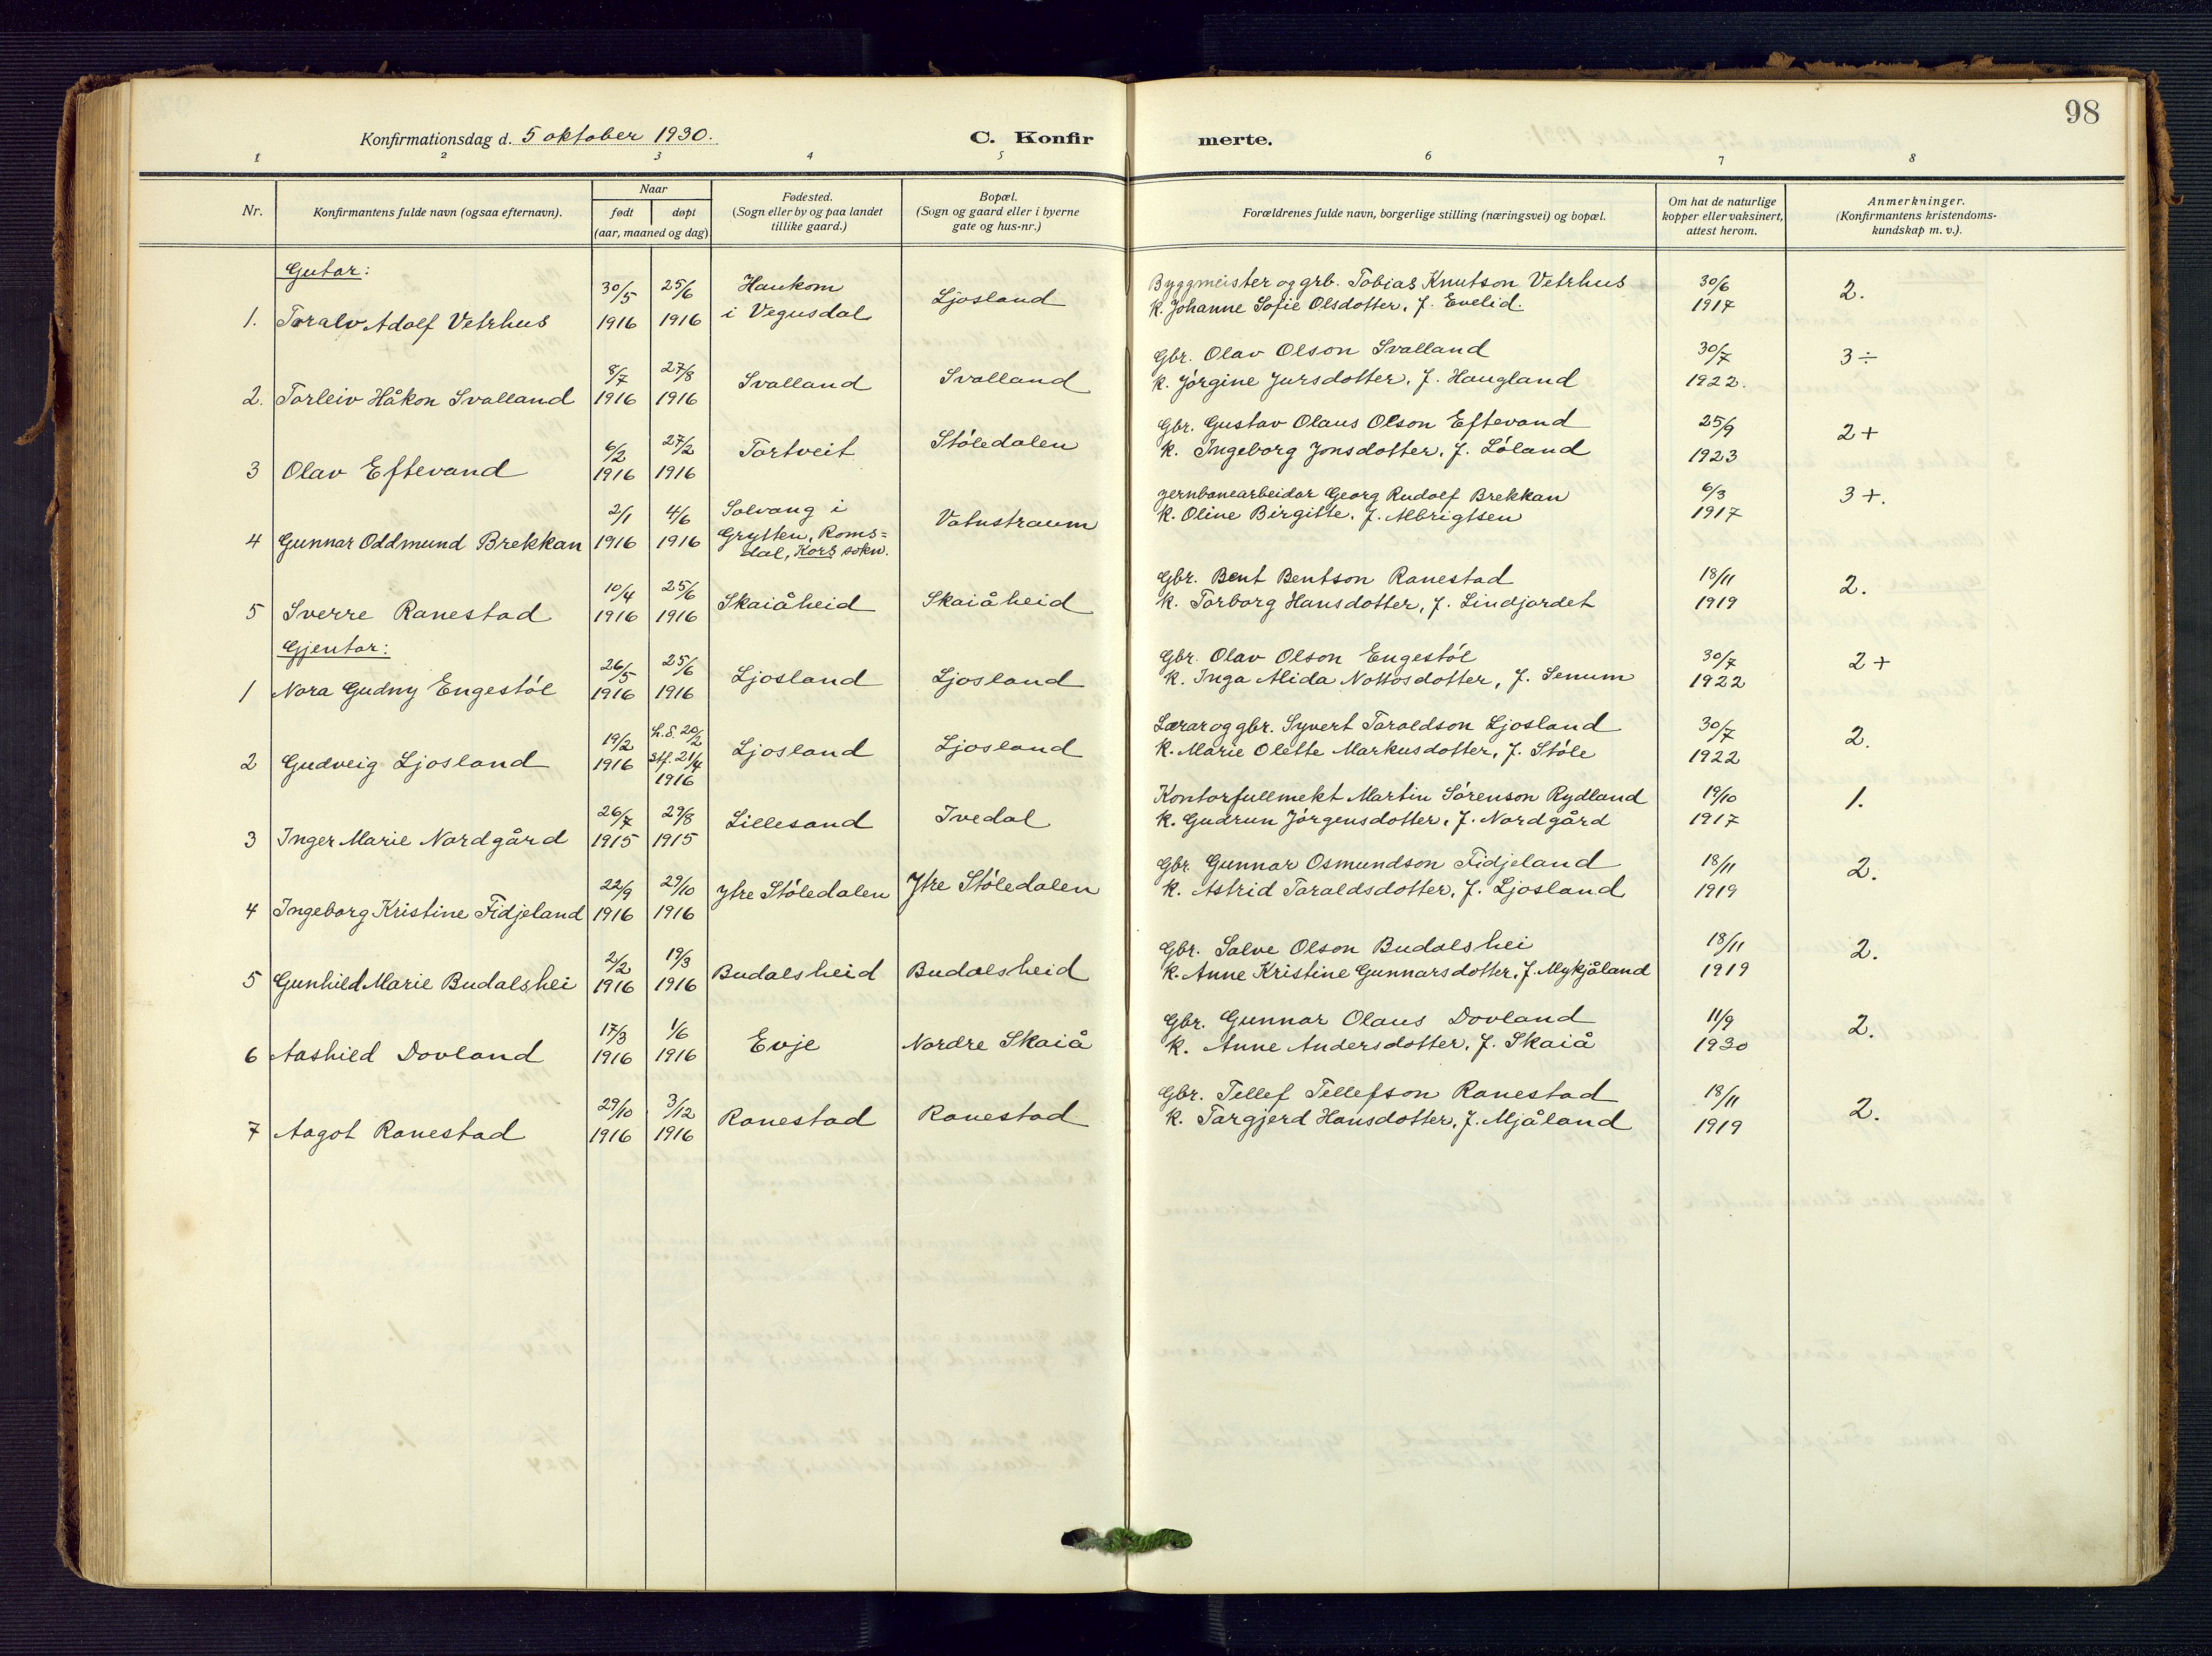 98
Konfirmationsdag d. 5 oktober 1930.
C. Konfirmerte.
1 2 3 4 5 6 7 8
Nr.
Konfirmantens fulde navn (ogsaa efternavn).
Naar
født
døpt
(aar, maaned og dag)
Fødested.
(Sogn eller by og paa landet
tillike gaard.)
Bopæl.
(Sogn og gaard eller i byerne
gate og hus-nr.)
Forældrenes fulde navn, borgerlige stilling (næringsvei) og bopæl.
Om hat de naturlige
kopper eller vaksinert,
attest herom.
Anmerkninger.
(Konfirmantens kristendoms-
kundskap m. v.).
Gutar:
1. Toralv Adolf Vetrhus
30/5 1916
25/6 1916
Haukom
i Vegusdal
Ljosland
Byggmeister og grb. Tobias Knutson Vetrhus
k. Johanne Sofie Olsdotter, f. Evelid.
30/6 1917
2.
2. Torleiv Håkon Svalland
8/7 1916
27/8 1916
Svalland
Svalland
Gbr. Olav Olson Svalland
k. Jørgine Jursdotter, f. Haugland
30/7 1922.
3 ÷
3 Olav Eftevand
6/2 1916
27/2 1916
Tortveit
Støledalen
Gbr. Gustav Olaus Olson Eftevand
k. Ingeborg Jonsdotter, f. Løland
25/9 1923
2+
4 Gunnar Oddmund Brekkan
2/1 1916
4/6 1916
Solvang i
Grytten, Roms=
dal, Kors sokn.
Vatnstraum
Jernbanearbeidar Georg Rudolf Brekkan
k. Oline Birgitte, f. Albrigtsen
6/3 1917
3+.
5 Sverre Ranestad
10/4 1916
25/6 1916
Skaiåheid
Skaiåheid
Gbr. Bent Bentson Ranestad
k. Torborg Hansdotter, f. Lindjordet
18/11 1919
2.
Gjentor:
1 Nora Gudny Engestøl
26/5 1916
25/6 1916
Ljosland
Ljosland
Gbr. Olav Olson Engestøl
k. Inga Alida Nottosdotter, f. Senum
30/7 1922
2+
2 Gudveig Ljosland
19/2 1916
h.d. 20/2
Stf. 21/4
1916
Ljosland
Ljosland
Lærar og gbr. Syvert Taraldson Ljosland
k. Marie Olette Markusdotter, f. Støle
30/7 1922
2.
3 Inger Marie Nordgård
26/7 1915
29/8 1915
Lillesand
Ivedal
Kontorfullmekt Martin Sørenson Rydland
k. Gudrun Jørgensdotter, f. Nordgård
19/10 1917
1.
4 Ingeborg Kristine Fidjeland
22/9 1916
29/10 1916
Ytre Støledalen
Ytre Støledalen
Gbr. Gunnar Osmundson Fidjeland
k. Astrid Taraldsdotter, f. Ljosland
18/11 1919
2.
5 Gunhild Marie Budalshei
2/2 1916
19/3 1916
Budalsheid
Budalsheid
Gbr. Salve Olson Budalshei
k. Anne Kristine Gunnarsdotter, f. Mykjåland
18/11 1919
2.
6 Aashild Dovland
17/3 1916
1/6 1916
Evje
Nordre Skaiå
Gbr. Gunnar Olaus Dovland
k. Anne Andersdotter, f. Skaiå
11/9 1930
2.
7 Aagot Ranestad
29/10 1916
3/12 1916
Ranestad
Ranestad
Gbr. Tellef Tellefson Ranestad
k. Targjerd Hansdotter, f. Mjåland
18/11 1919
2.